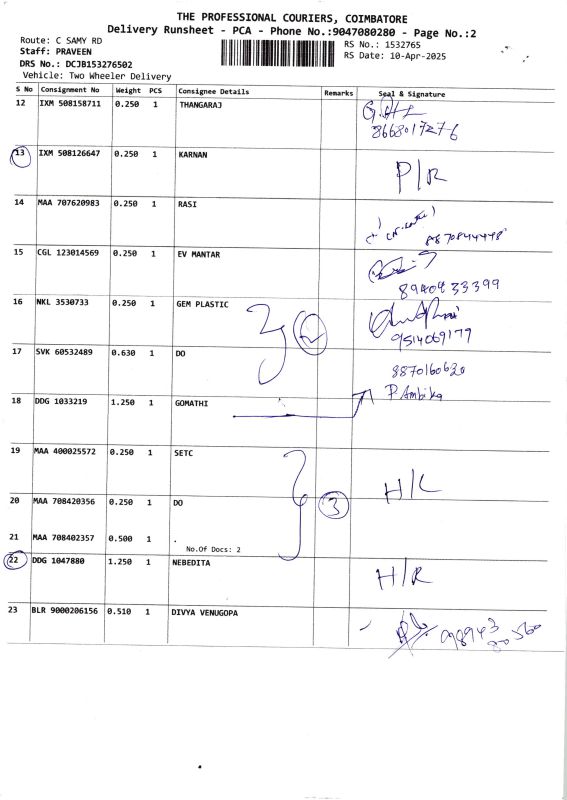 THE PROFESSIONAL COURIERS, COIMBATORE
Delivery Runsheet - PCA - Phone No.:9047080280 - Page No.:2
Route: C SAMY RD
RS No.: 1532765
Staff: PRAVEEN
RS Date: 10-Apr-2025
DRS No.: DCJB153276502
Vehicle: Two Wheeler Delivery
S No Consignment No Weight PCS Consignee Details Remarks Seal & Signature
12 IXM 508158711 0.250 1 THANGARAJ
8668017276
13 IXM 508126647 0.250 1 KARNAN P/R
14 MAA 707620983 0.250 1 RASI
8870844498
15 CGL 123014569 0.250 1 EV MANTAR
8940933399
16 NKL 3530733 0.250 1 GEM PLASTIC 2
9514069179
17 SVK 60532489 0.630 1 DO 8870160620
P Ambika
18 DDG 1033219 1.250 1 GOMATHI
19 MAA 400025572 0.250 1 SETC
H/L
20 MAA 708420356 0.250 1 DO 3
21 MAA 708402357 0.500 1 .
No.Of Docs: 2
22 DDG 1047880 1.250 1 NEBEDITA H/R
23 BLR 9000206156 0.510 1 DIVYA VENUGOPA